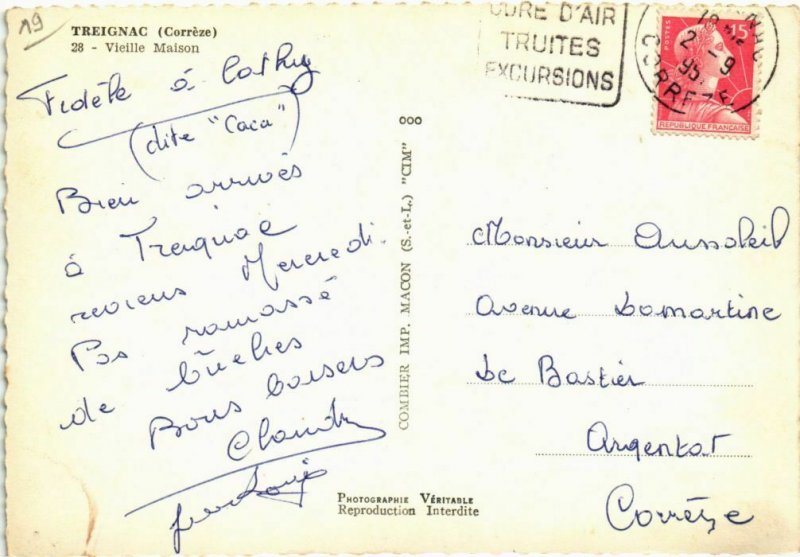 19
TREIGNAC (Corrèze)
28 - Vieille Maison
Fidèle à Cathy
(dite "Caca")
Bien arrivés
à Treignac
reviens Mercredi.
Pas ramassé
de bûches
Bons baisers
Claude
COMBIER IMP. MACON (S.-et-L.) "CIM"
PHOTOGRAPHIE VÉRITABLE
Reproduction Interdite
CURE D'AIR
TRUITES
EXCURSIONS
CORREZE
POSTES
15
REPUBLIQUE FRANÇAISE
Monsieur Aussoleil
Avenue Lamartine
Le Bastier
Argentat
Corrèze